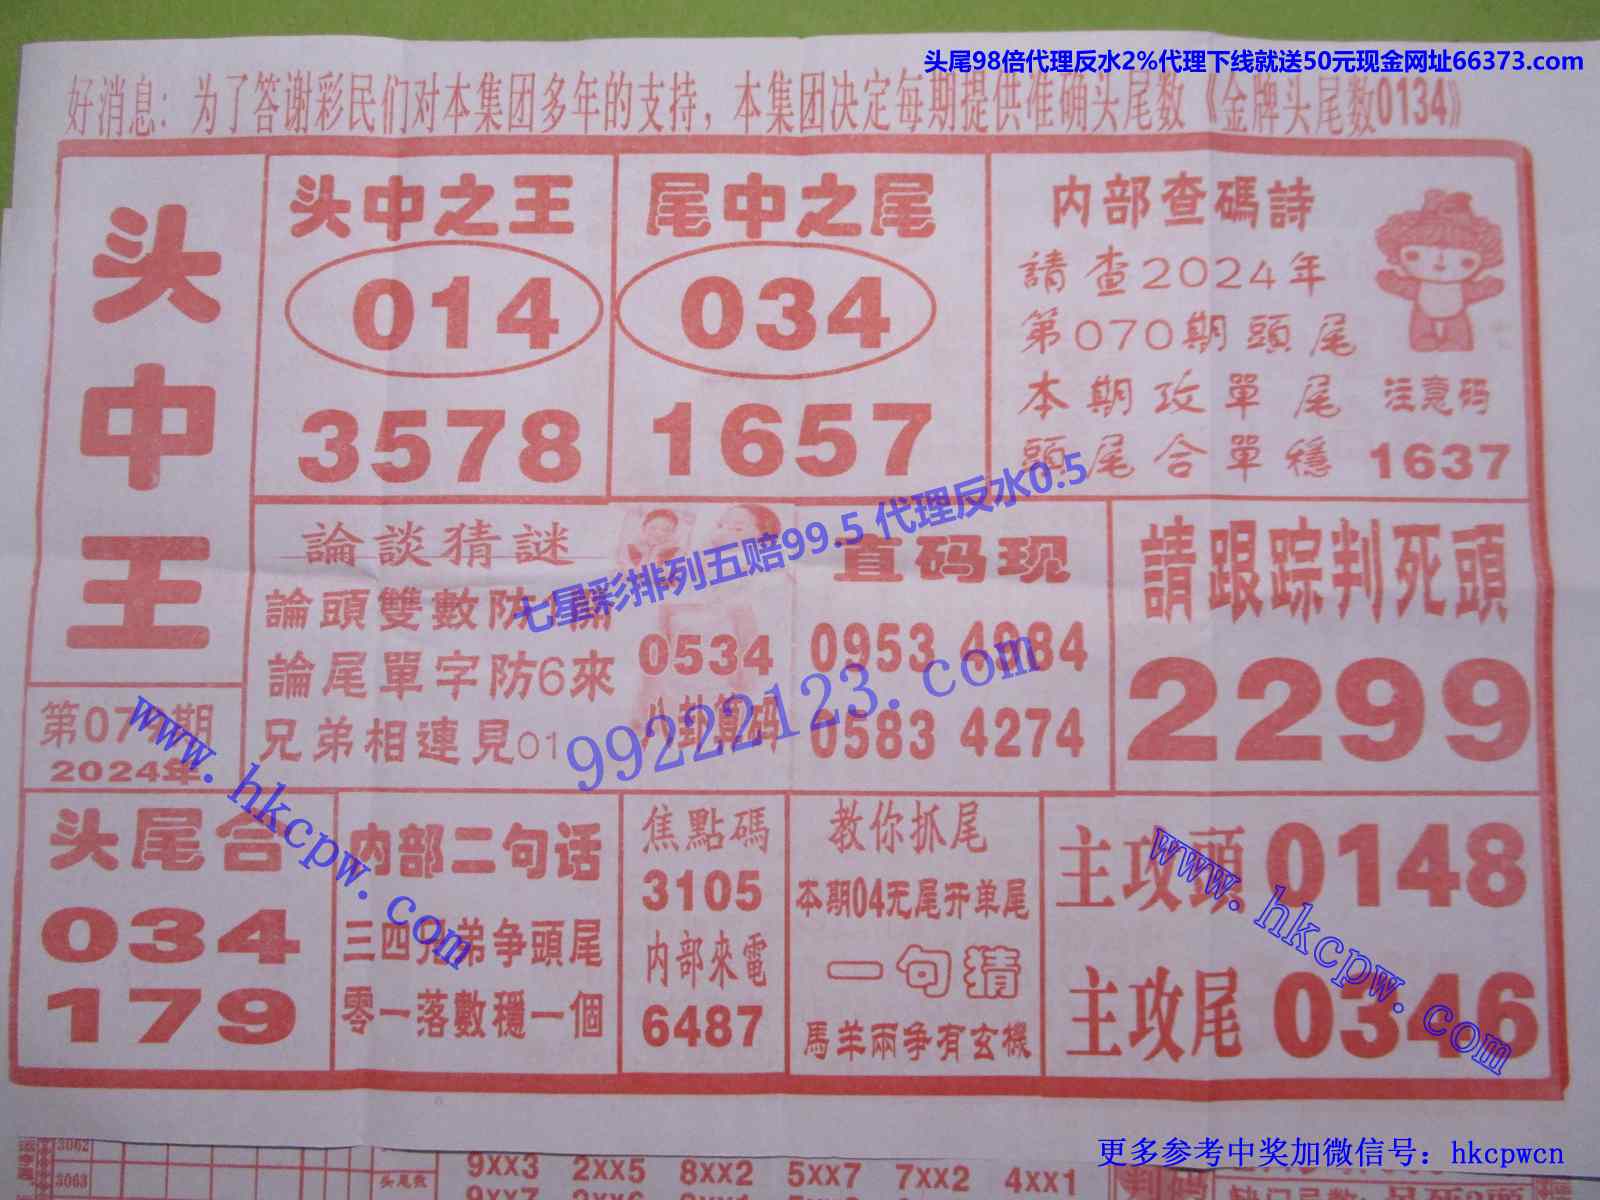 头尾98倍代理反水2%代理下线就送50元现金网址66373.com
好消息：为了答谢彩民们对本集团多年的支持，本集团决定每期提供准确头尾数《金牌头尾数0134》
头中王
第07 期
2024年
头中之王
014
3578
尾中之尾
034
1657
内部查碼詩
請查2024年
第070期頭尾
本期攻單尾
頭尾合單穩
注意码
1637
論談猜謎
論頭雙數防
論尾單字防6來
兄弟相連見01
0534
八卦算码
七星彩排列五赔99.5 代理反水0.5
99222123.com
直码现
0953 4984
0583 4274
請跟踪判死頭
2299
头尾合
034
179
内部二句话
三四兄弟争頭尾
零一落數穩一個
焦點碼
3105
内部來電
6487
教你抓尾
本期04无尾开单尾
一句猜
馬羊兩争有玄機
主攻頭0148
主攻尾0346
www.hkcpw.com
www.hkcpw.com
更多参考中奖加微信号：hkcpwcn
3062
3063
头尾数
9XX3 2XX5 8XX2 5XX7 7XX2 4XX1